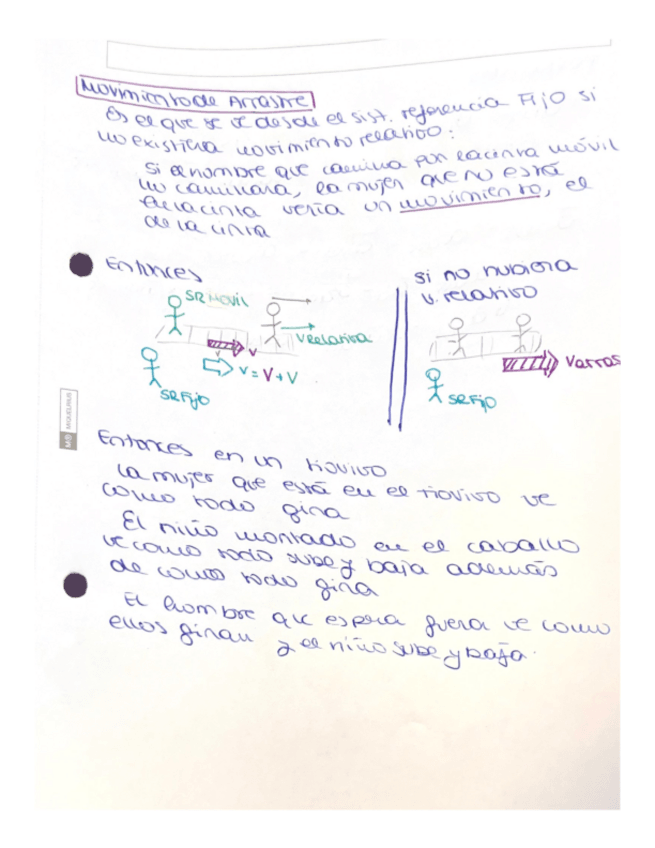 Movimiento de Arrastre
Es el que se ve desde el sist. referencia Fijo si
no existiera movimiento relativo:
Si el hombre que camina por la cinta móvil
no caminara, la mujer que no está
en la cinta vería un movimiento, el
de la cinta
Entonces
SR MOVIL
v relativa
v
v
v = v + v
SR Fijo
si no hubiera
v. relativo
v arras
SR Fijo
MIQUELRIUS
Entonces en un tiovivo
La mujer que está en el tiovivo ve
como todo gira
El niño montado en el caballo
ve como todo sube y baja además
de como todo gira
El hombre que espera fuera ve como
ellos giran y el niño sube y baja.